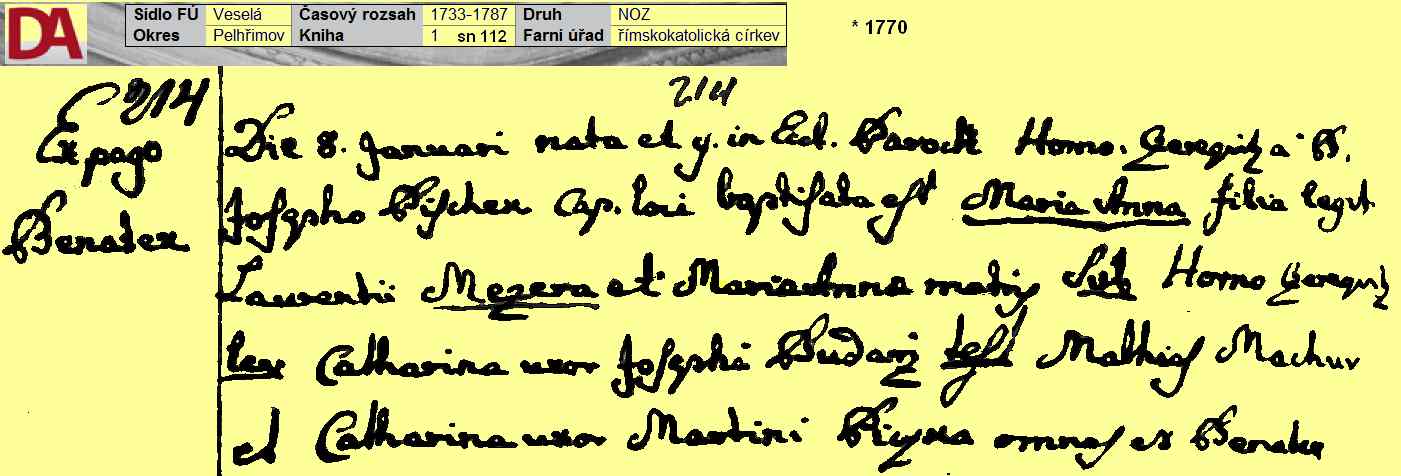 DA
Sídlo FÚ Veselá Časový rozsah 1733-1787 Druh NOZ
Okres Pelhřimov Kniha 1 sn 112 Farní úřad římskokatolická církev
* 1770
214
Ex pago
Benatex
214
Die 8. Januari nata et 9. in Eccl. Paroch Horno. Cerequitz a P.
Josepho Pischex Cap. loci baptisata est Maria Anna filia legit
Laurentii Mezera et Maria Anna matris Sub Horno Cerequitz
lex Catharina uxor Josephi test Mathias Machur
et Catharina uxor Martini omnes ex Benatex